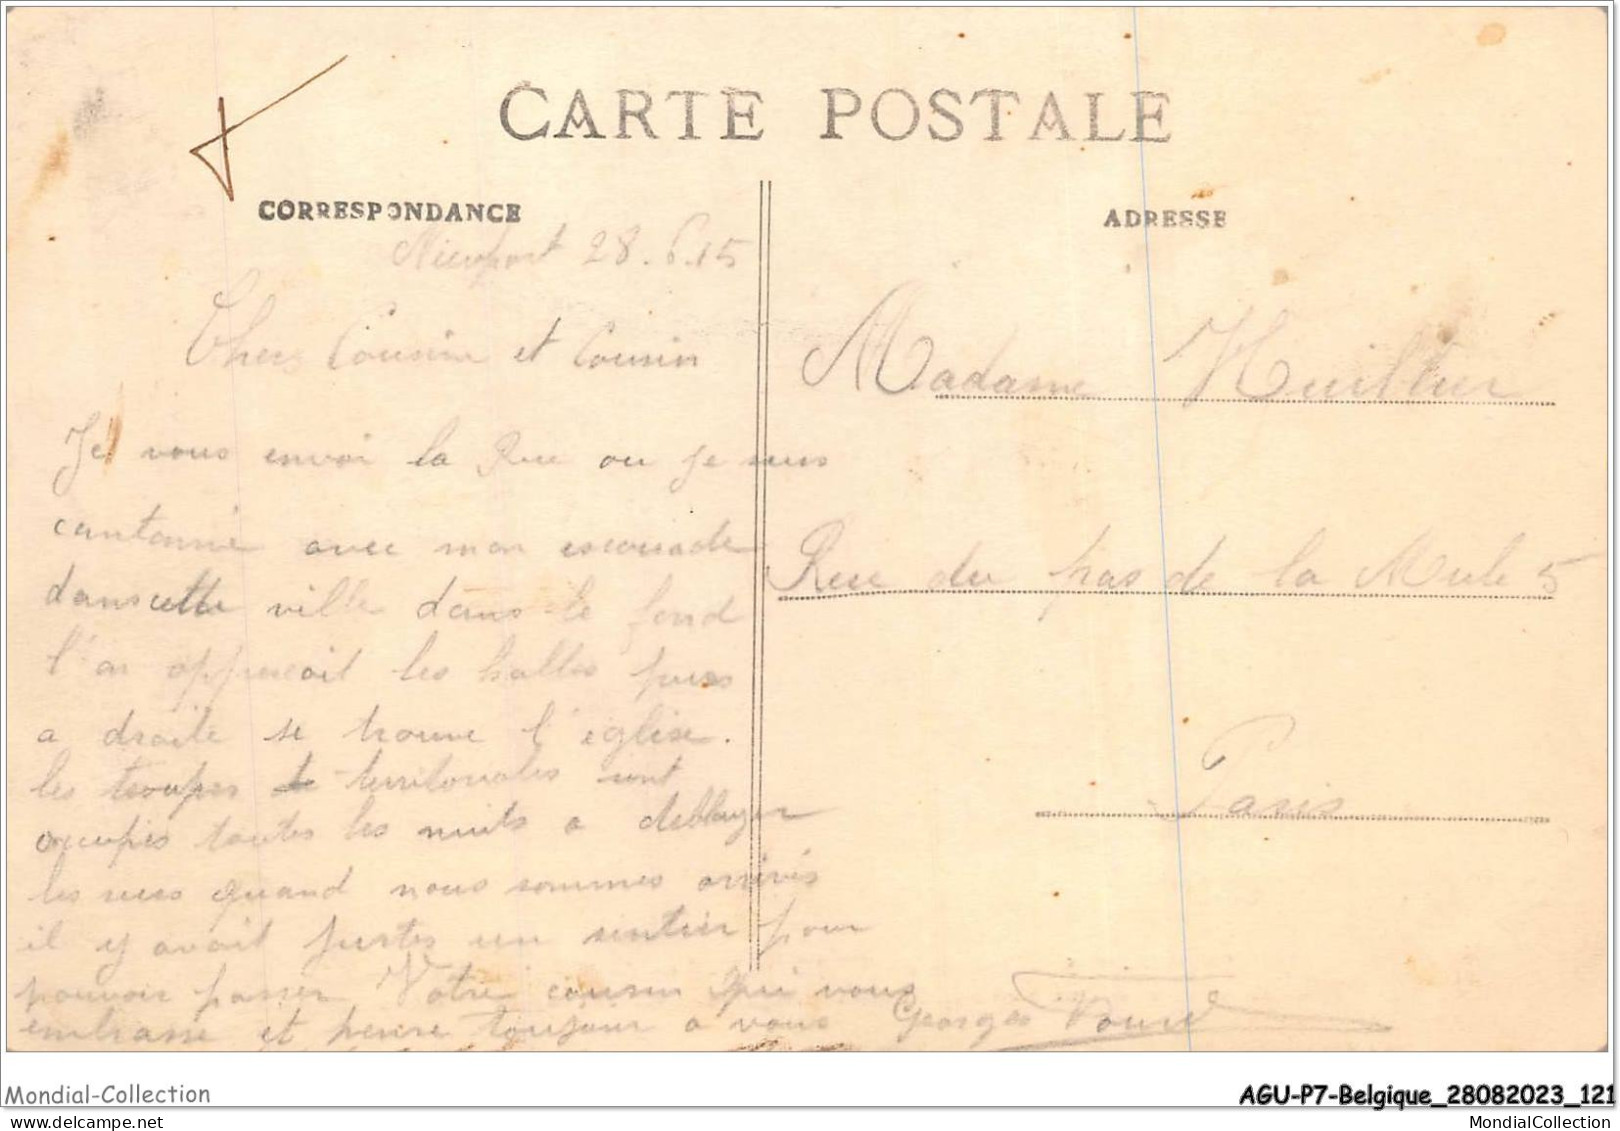 CARTE POSTALE
CORRESPONDANCE
ADRESSE
Nieuport 28.6.15
Chers Cousine et Cousin
Je vous envoi la Rue ou je suis
cantonné avec mon escouade
dans cette ville dans le fond
l'on apperçoit les halles puis
a droite se trouve l'église.
les troupes territoriales sont
occupés toutes les nuits a deblayer
les rues quand nous sommes arrivés
il y avait justes un sentier pour
pouvoir passer Votre cousin qui vous
embrasse et pense toujour a vous Georges
Madame
Rue du pas de la Mule 5
Paris
Mondial-Collection
AGU-P7-Belgique_28082023_121
www.delcampe.net
MondialCollection